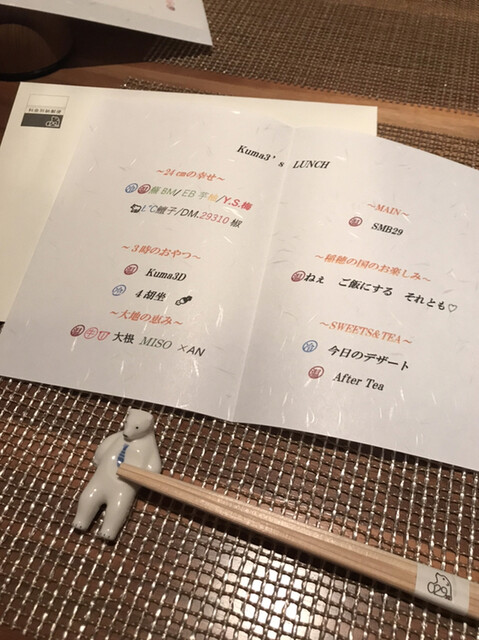 Kuma3's LUNCH
～24cmの幸せ～
冷 温 BM/EB 芋 /Y.S.梅
L℃ 子/DM.29310 椒
～3時のおやつ～
温 Kuma3D
冷 4胡坐
～大地の恵み～
温 大根 MISO ×AN
～MAIN～
温 SMB29
～稲穂の国のお楽しみ～
温 ねぇ ご飯にする それとも♡
～SWEETS&TEA～
冷 今日のデザート
温 After Tea